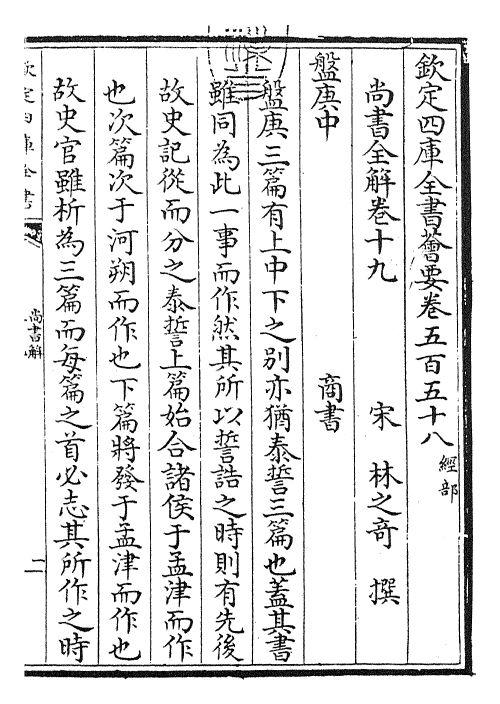 欽定四庫全書薈要卷五百五十八 經部
尚書全解卷十九 宋 林之奇 撰
盤庚中 商書
盤庚三篇有上中下之別亦猶泰誓三篇也蓋其書
雖同為此一事而作然其所以誓誥之時則有先後
故史記從而分之泰誓上篇始合諸侯于孟津而作
也次篇次于河朔而作也下篇將發于孟津而作也
故史官雖析為三篇而每篇之首必志其所作之時
欽定四庫全書
尚書解